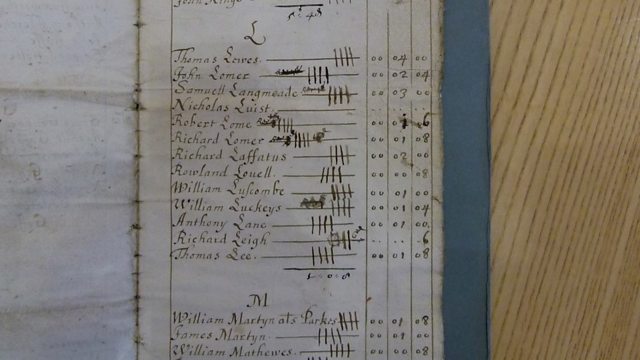 John
L
Thomas Lewes. 00 04 00
John Lomer 00 02 04
Samuell Langmeade 00 03 00
Nicholas Luist.
Robert Lome 6
Richard Lomer 00 01 08
Richard Laffatus 00 00
Rowland Louell. 00 00 08
William Luscombe 00 01 00
William Luckeys 00 01 04
Anthony Lane 00 01 00
Richard Leigh 6
Thomas Lee. 00 01 08
1 0 8
M
William Martyn als Parkes 00 01 08
James Martyn. 00 00 08
William Mathewes. 00 00 08